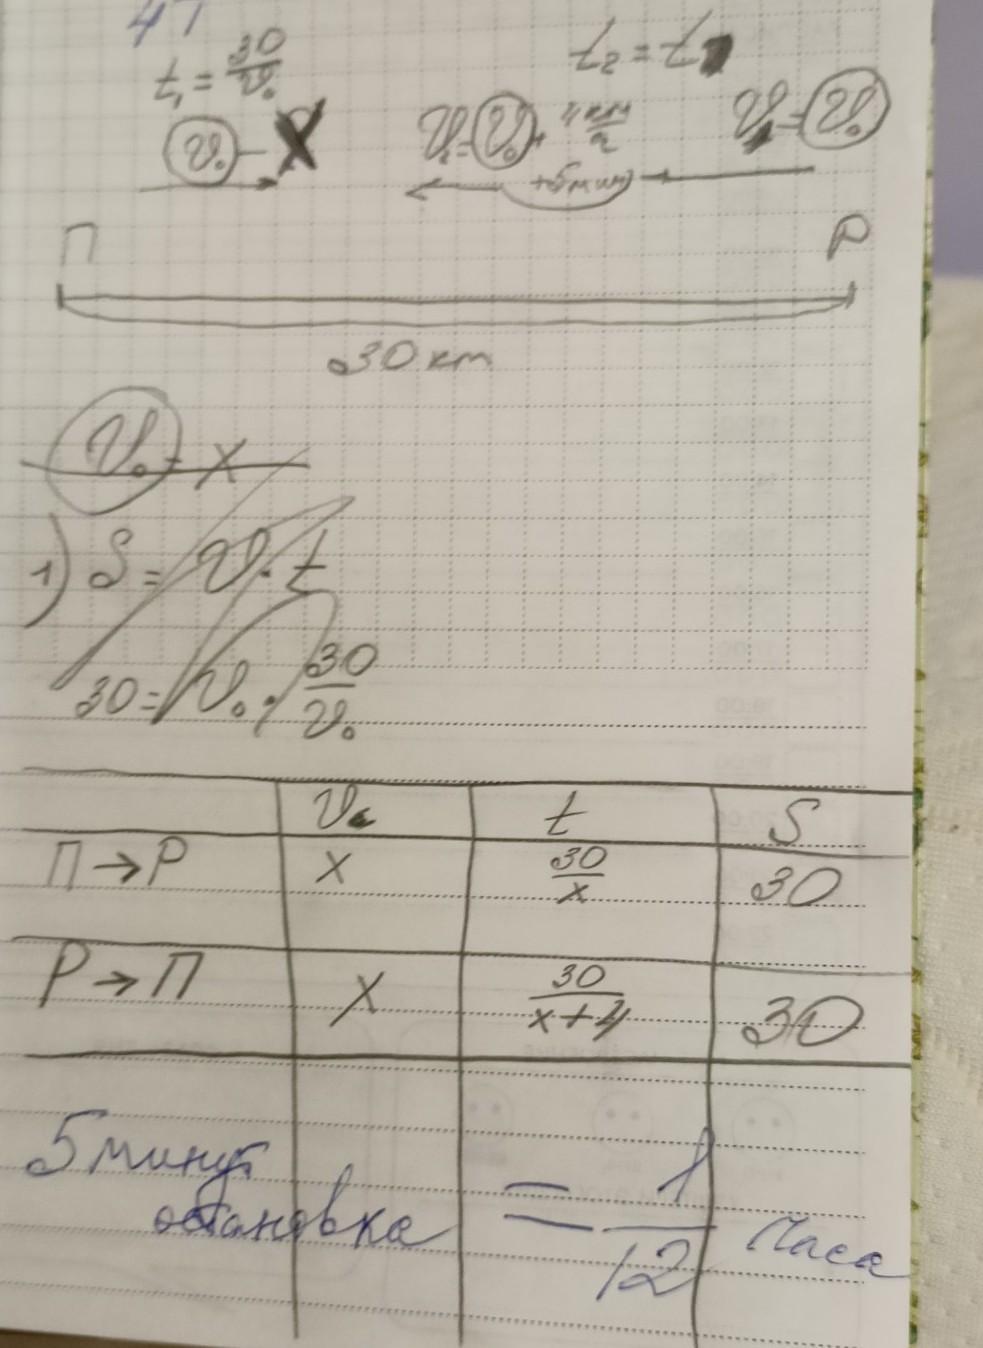 47
t₁ = 30/v₀
t₂ = t
v₀ – X
v₂ = v₀ + 4 км/ч
v₁ = v₀
+5 мин
П
Р
30 км
v₀ – x
1) S = v · t
30 = v₀ · 30/v₀
v t S
П → Р x 30/x 30
Р → П x 30/x+4 30
5 минут
остановка = 1/12 часа